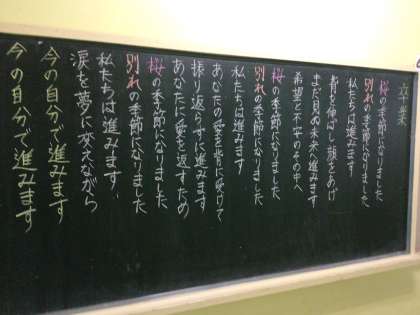 卒業
桜の季節になりました
別れの季節になりました
私たちは進みます
背を伸ばし顔をあげ
まだ見ぬ未来へ進みます
希望と不安のその中へ
桜の季節になりました
別れの季節になりました
私たちは進みます
あなたの愛を背に受けて
振り返らずに進みます
あなたに愛を返すため
桜の季節になりました
別れの季節になりました
私たちは進みます
涙を夢に変えながら
今の自分で進みます
今の自分で進みます